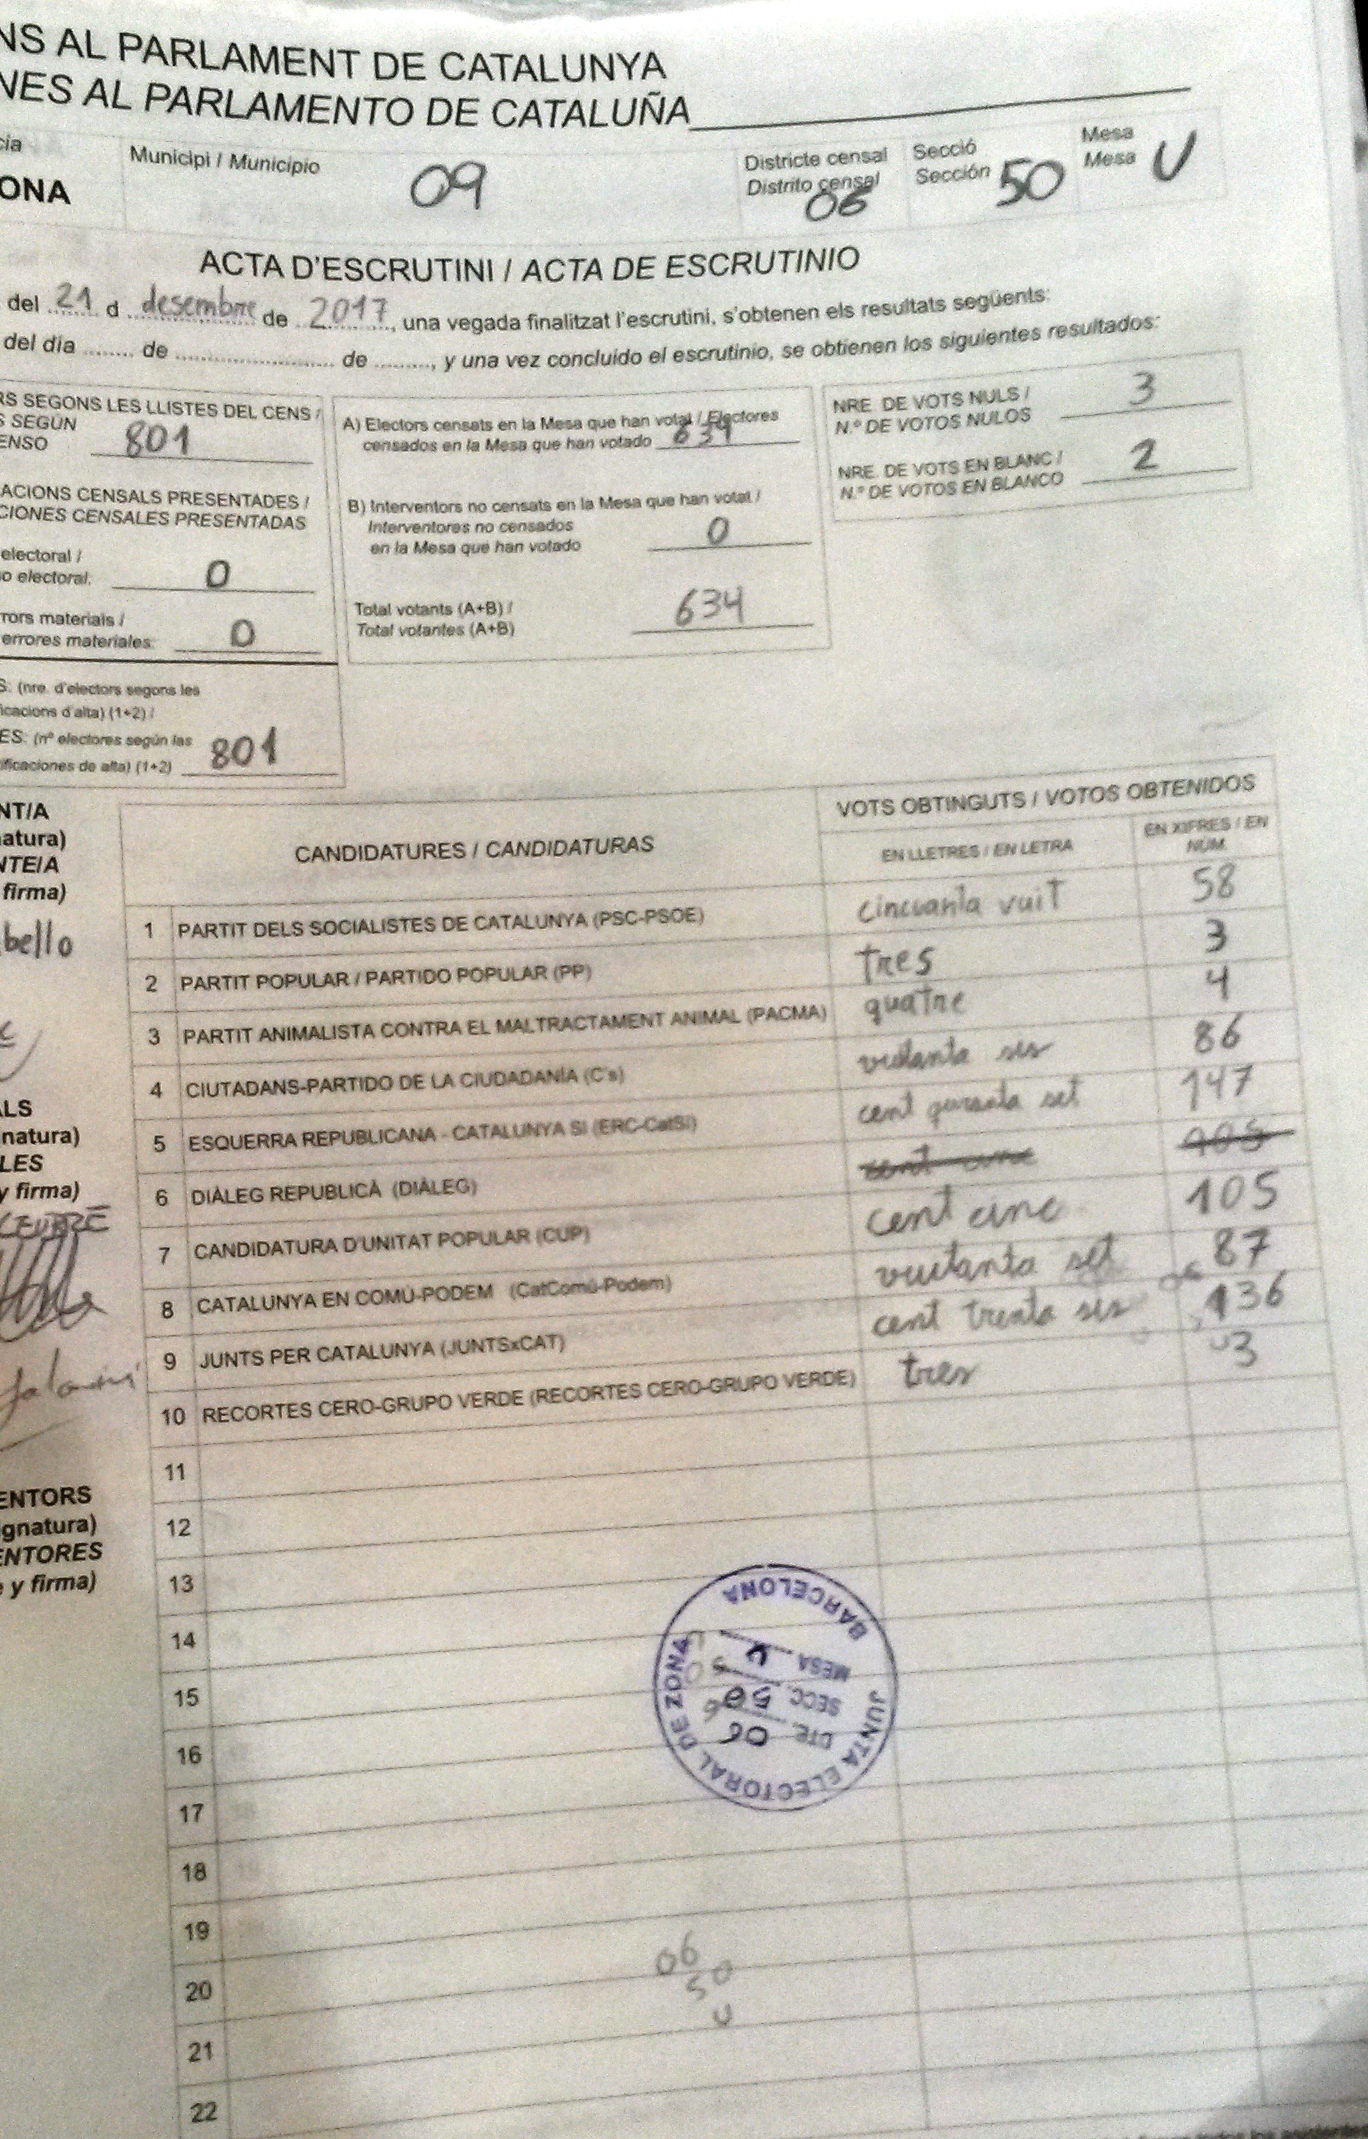 NS AL PARLAMENT DE CATALUNYA
NES AL PARLAMENTO DE CATALUÑA
cia
ONA
Municipi / Municipio 09
Districte censal
Distrito censal
06
Secció
Sección 50
Mesa
Mesa U
ACTA D'ESCRUTINI / ACTA DE ESCRUTINIO
del 21 d desembre de 2017, una vegada finalitzat l'escrutini, s'obtenen els resultats següents:
del día ........ de ........................ de ........, y una vez concluido el escrutinio, se obtienen los siguientes resultados:
RS SEGONS LES LLISTES DEL CENS /
S SEGÚN
ENSO 801
ACIONS CENSALS PRESENTADES /
CIONES CENSALES PRESENTADAS
electoral /
o electoral: 0
rors materials /
errores materiales: 0
S: (nre. d'electors segons les
icacions d'alta) (1+2) /
ES: (nº electores según las
ificaciones de alta) (1+2) 801
A) Electors censats en la Mesa que han votat / Electores
censados en la Mesa que han votado 634
B) Interventors no censats en la Mesa que han votat /
Interventores no censados
en la Mesa que han votado 0
Total votants (A+B) /
Total votantes (A+B) 634
NRE. DE VOTS NULS /
N.º DE VOTOS NULOS 3
NRE. DE VOTS EN BLANC /
N.º DE VOTOS EN BLANCO 2
NT/A
natura)
NTE/A
firma)
bello
ALS
natura)
LES
y firma)
ENTORS
ignatura)
ENTORES
e y firma)
CANDIDATURES / CANDIDATURAS
VOTS OBTINGUTS / VOTOS OBTENIDOS
EN LLETRES / EN LETRA
EN XIFRES / EN
NÚM.
1 PARTIT DELS SOCIALISTES DE CATALUNYA (PSC-PSOE) cincuanta vuit 58
2 PARTIT POPULAR / PARTIDO POPULAR (PP) tres 3
3 PARTIT ANIMALISTA CONTRA EL MALTRACTAMENT ANIMAL (PACMA) quatre 4
4 CIUTADANS-PARTIDO DE LA CIUDADANÍA (C's) vuitanta sis 86
5 ESQUERRA REPUBLICANA - CATALUNYA SÍ (ERC-CatSí) cent quranta set 147
6 DIÀLEG REPUBLICÀ (DIÀLEG) cent cinc 105
7 CANDIDATURA D'UNITAT POPULAR (CUP) cent cinc 105
8 CATALUNYA EN COMÚ-PODEM (CatComú-Podem) vuitanta set 87
9 JUNTS PER CATALUNYA (JUNTSxCAT) cent trenta sis 136
10 RECORTES CERO-GRUPO VERDE (RECORTES CERO-GRUPO VERDE) tres 3
11
12
13
14
15
16
17
18
19
20
21
22
JUNTA ELECTORAL DE ZONA
BARCELONA
DTE. 06
SECC. 50
MESA U
06
50
U